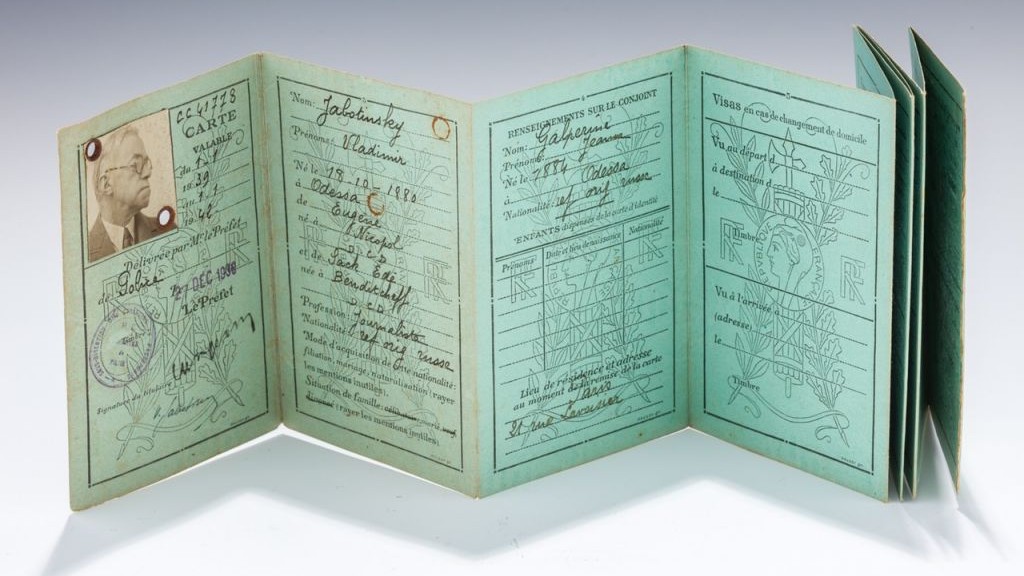 CC 41778
CARTE
VALABLE
du 1.1
1939
au 1.1
1942
Délivrée par Mr le Préfet
de Police
27 DEC 1938
Le Préfet
Signature du titulaire
Nom: Jabotinsky
Prénoms: Vladimir
Né le 18.10.1880
à Odessa
de Eugène
né à Nicopol
D C D
et de Sack Eve
née à Benditcheff
D. C. D.
Profession: Journaliste
Nationalité: ref orig russe
Mode d'acquisition de cette nationalité:
filiation, mariage, naturalisation (rayer
les mentions inutiles).
Situation de famille: célibataire, marié, veuf
divorcé (rayer les mentions inutiles)
4
RENSEIGNEMENTS SUR LE CONJOINT
Nom: Galperine
Prénoms: Jeanne
Né le 1884 Odessa
à
Nationalité: ref orig russe
ENFANTS dispensés de la carte d'identité
Prénoms
Date et lieu de naissance
Nationalité
Lieu de résidence et adresse
au moment de la remise de la carte
Paris
rue
5
Visas en cas de changement de domicile
Vu au départ d
à destination d
le
Timbre
Vu à l'arrivée à
(adresse)
le
Timbre